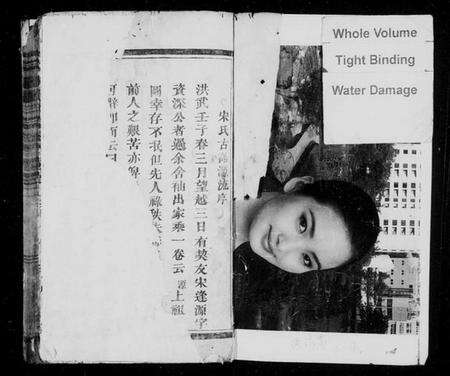 Whole Volume
Tight Binding
Water Damage
宋氏古源流序
洪武壬子春三月望越三日有契友宋逢源字
資深公者過余舍袖出家乘一卷云上祖
圖幸存不泯但先人祿秩
前人之艱苦亦